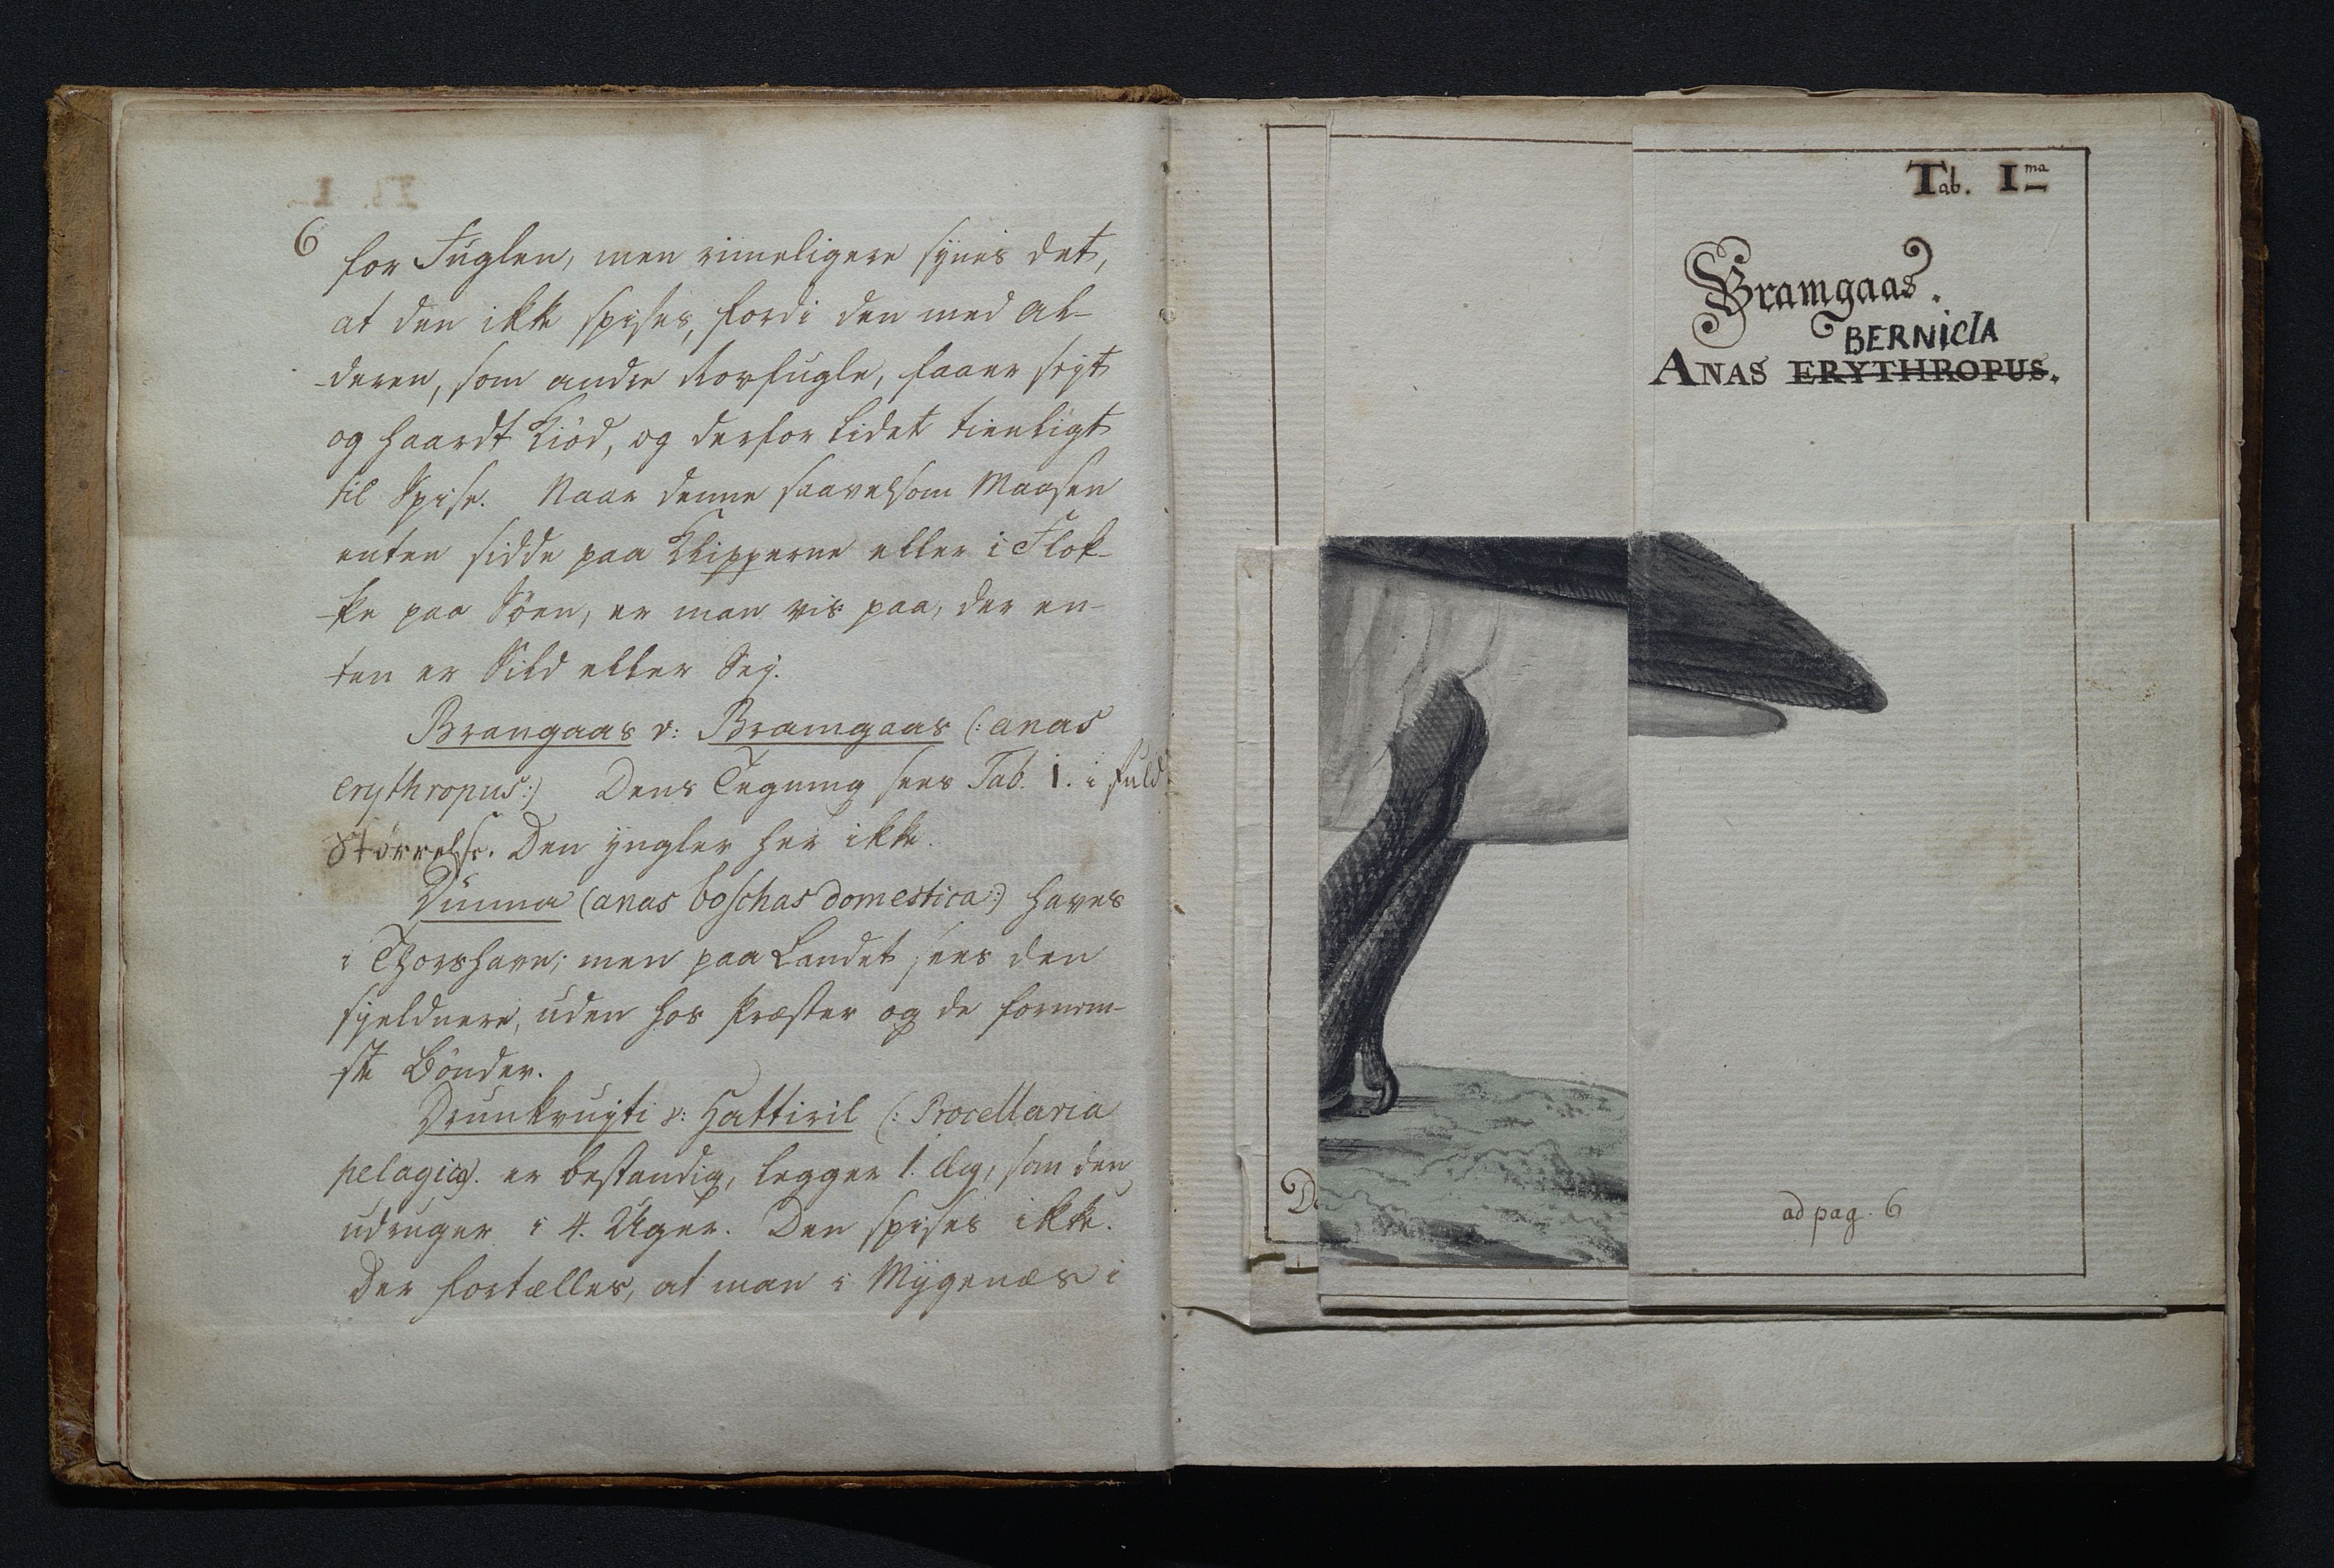 6
for Fuglen, men rimeligere synes det,
at den ikke spises, fordi den med Al-
-deren, som andre Rovfugle, faaer seigt
og haardt Kiød, og derfor lidet tienligt
til Spise. Naar denne saavelsom Maasen
enten sidde paa Klipperne eller i Flok-
-ke paa Søen, er man vis paa, der en-
ten er Sild eller Sej.
Brangaas v: Bramgaas (: anas
erythropus:) Dens Tegning sees Tab. 1. i fuld
Størrelse. Den yngler her ikke.
Dunna (anas boschas domestica:) haves
i Thorshavn; men paa Landet sees den
sjeldnere, uden hos Præster og de fornem-
ste Bønder.
Drunkvuyti v: Hattiril (: Procellaria
pelagica). er bestandig, legger 1. Æg, som den
udruger i 4. Uger. Den spises ikke.
Der fortælles, at man i Mygenæs i
Tab. I ma
Bramgaas.
BERNICIA
ANAS ERYTHROPUS.
ad pag. 6